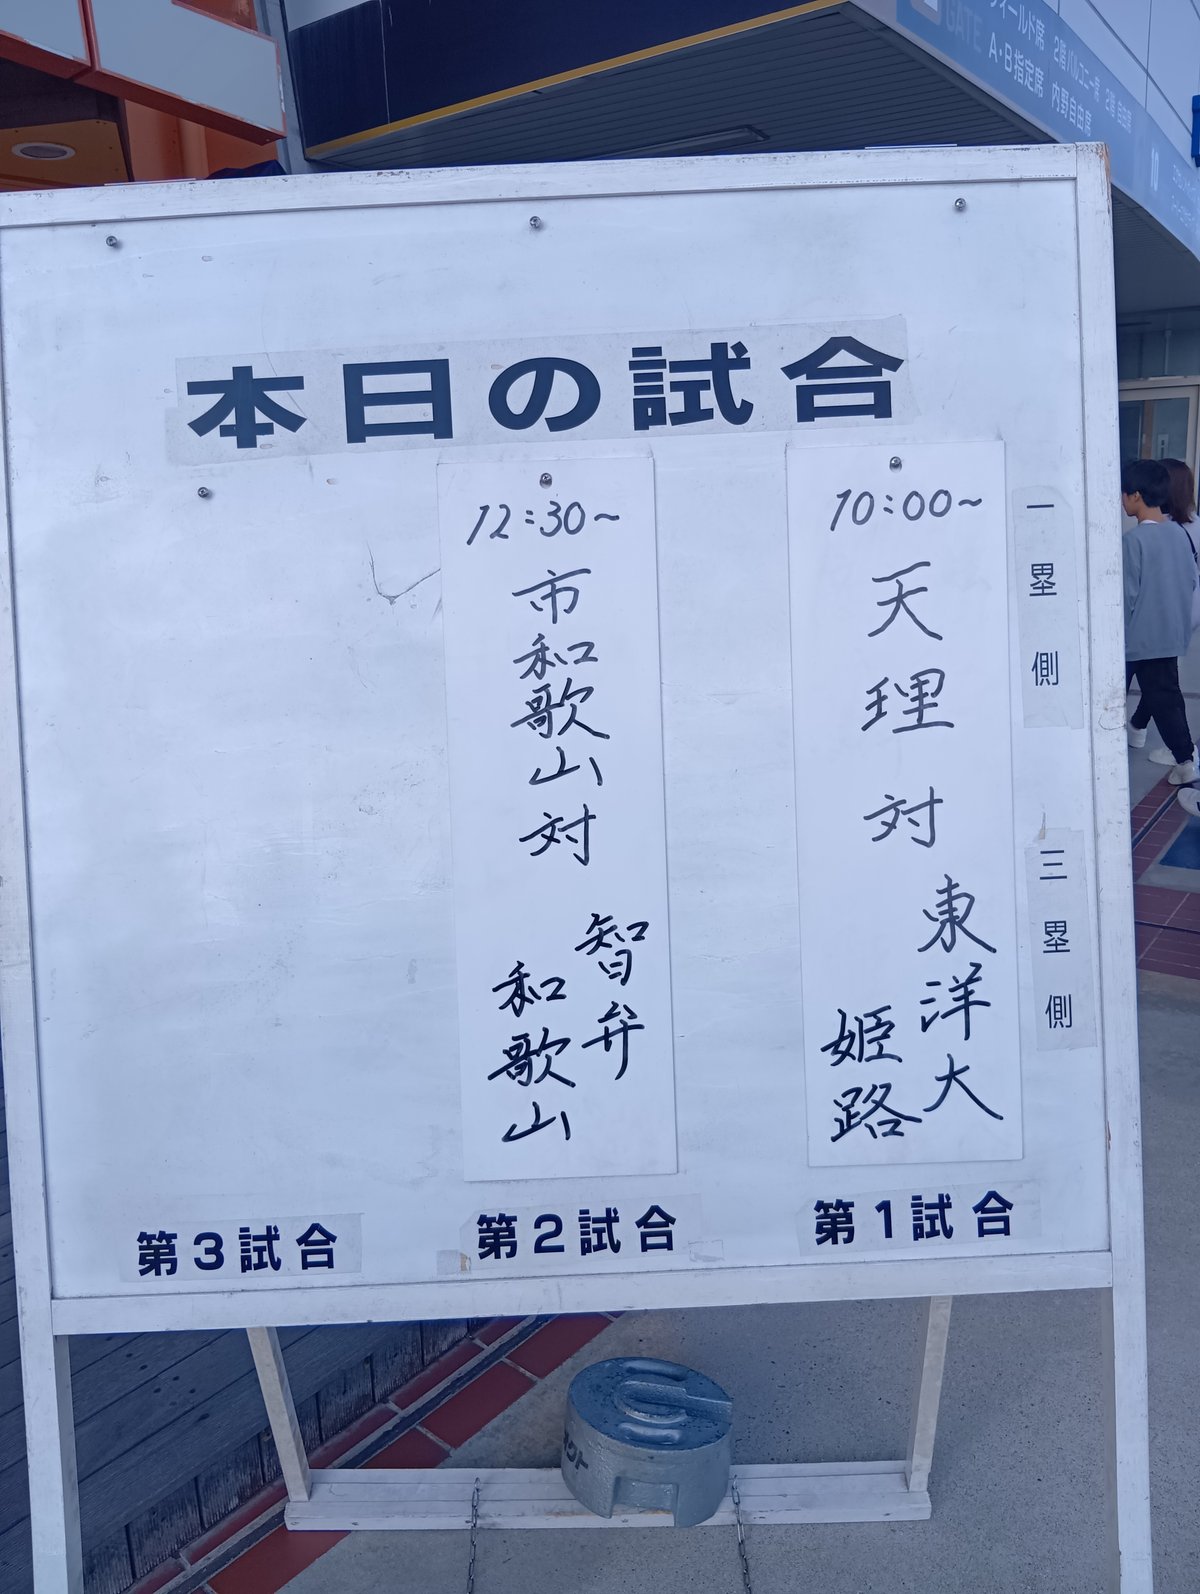 フィールド席 2階バルコニー席 2階自由席
GATE A・B指定席 内野自由席
10
本日の試合
一塁側
三塁側
10:00~
天理
対
東洋大
姫路
第1試合
12:30~
市和歌山
対
智弁
和歌山
第2試合
第3試合